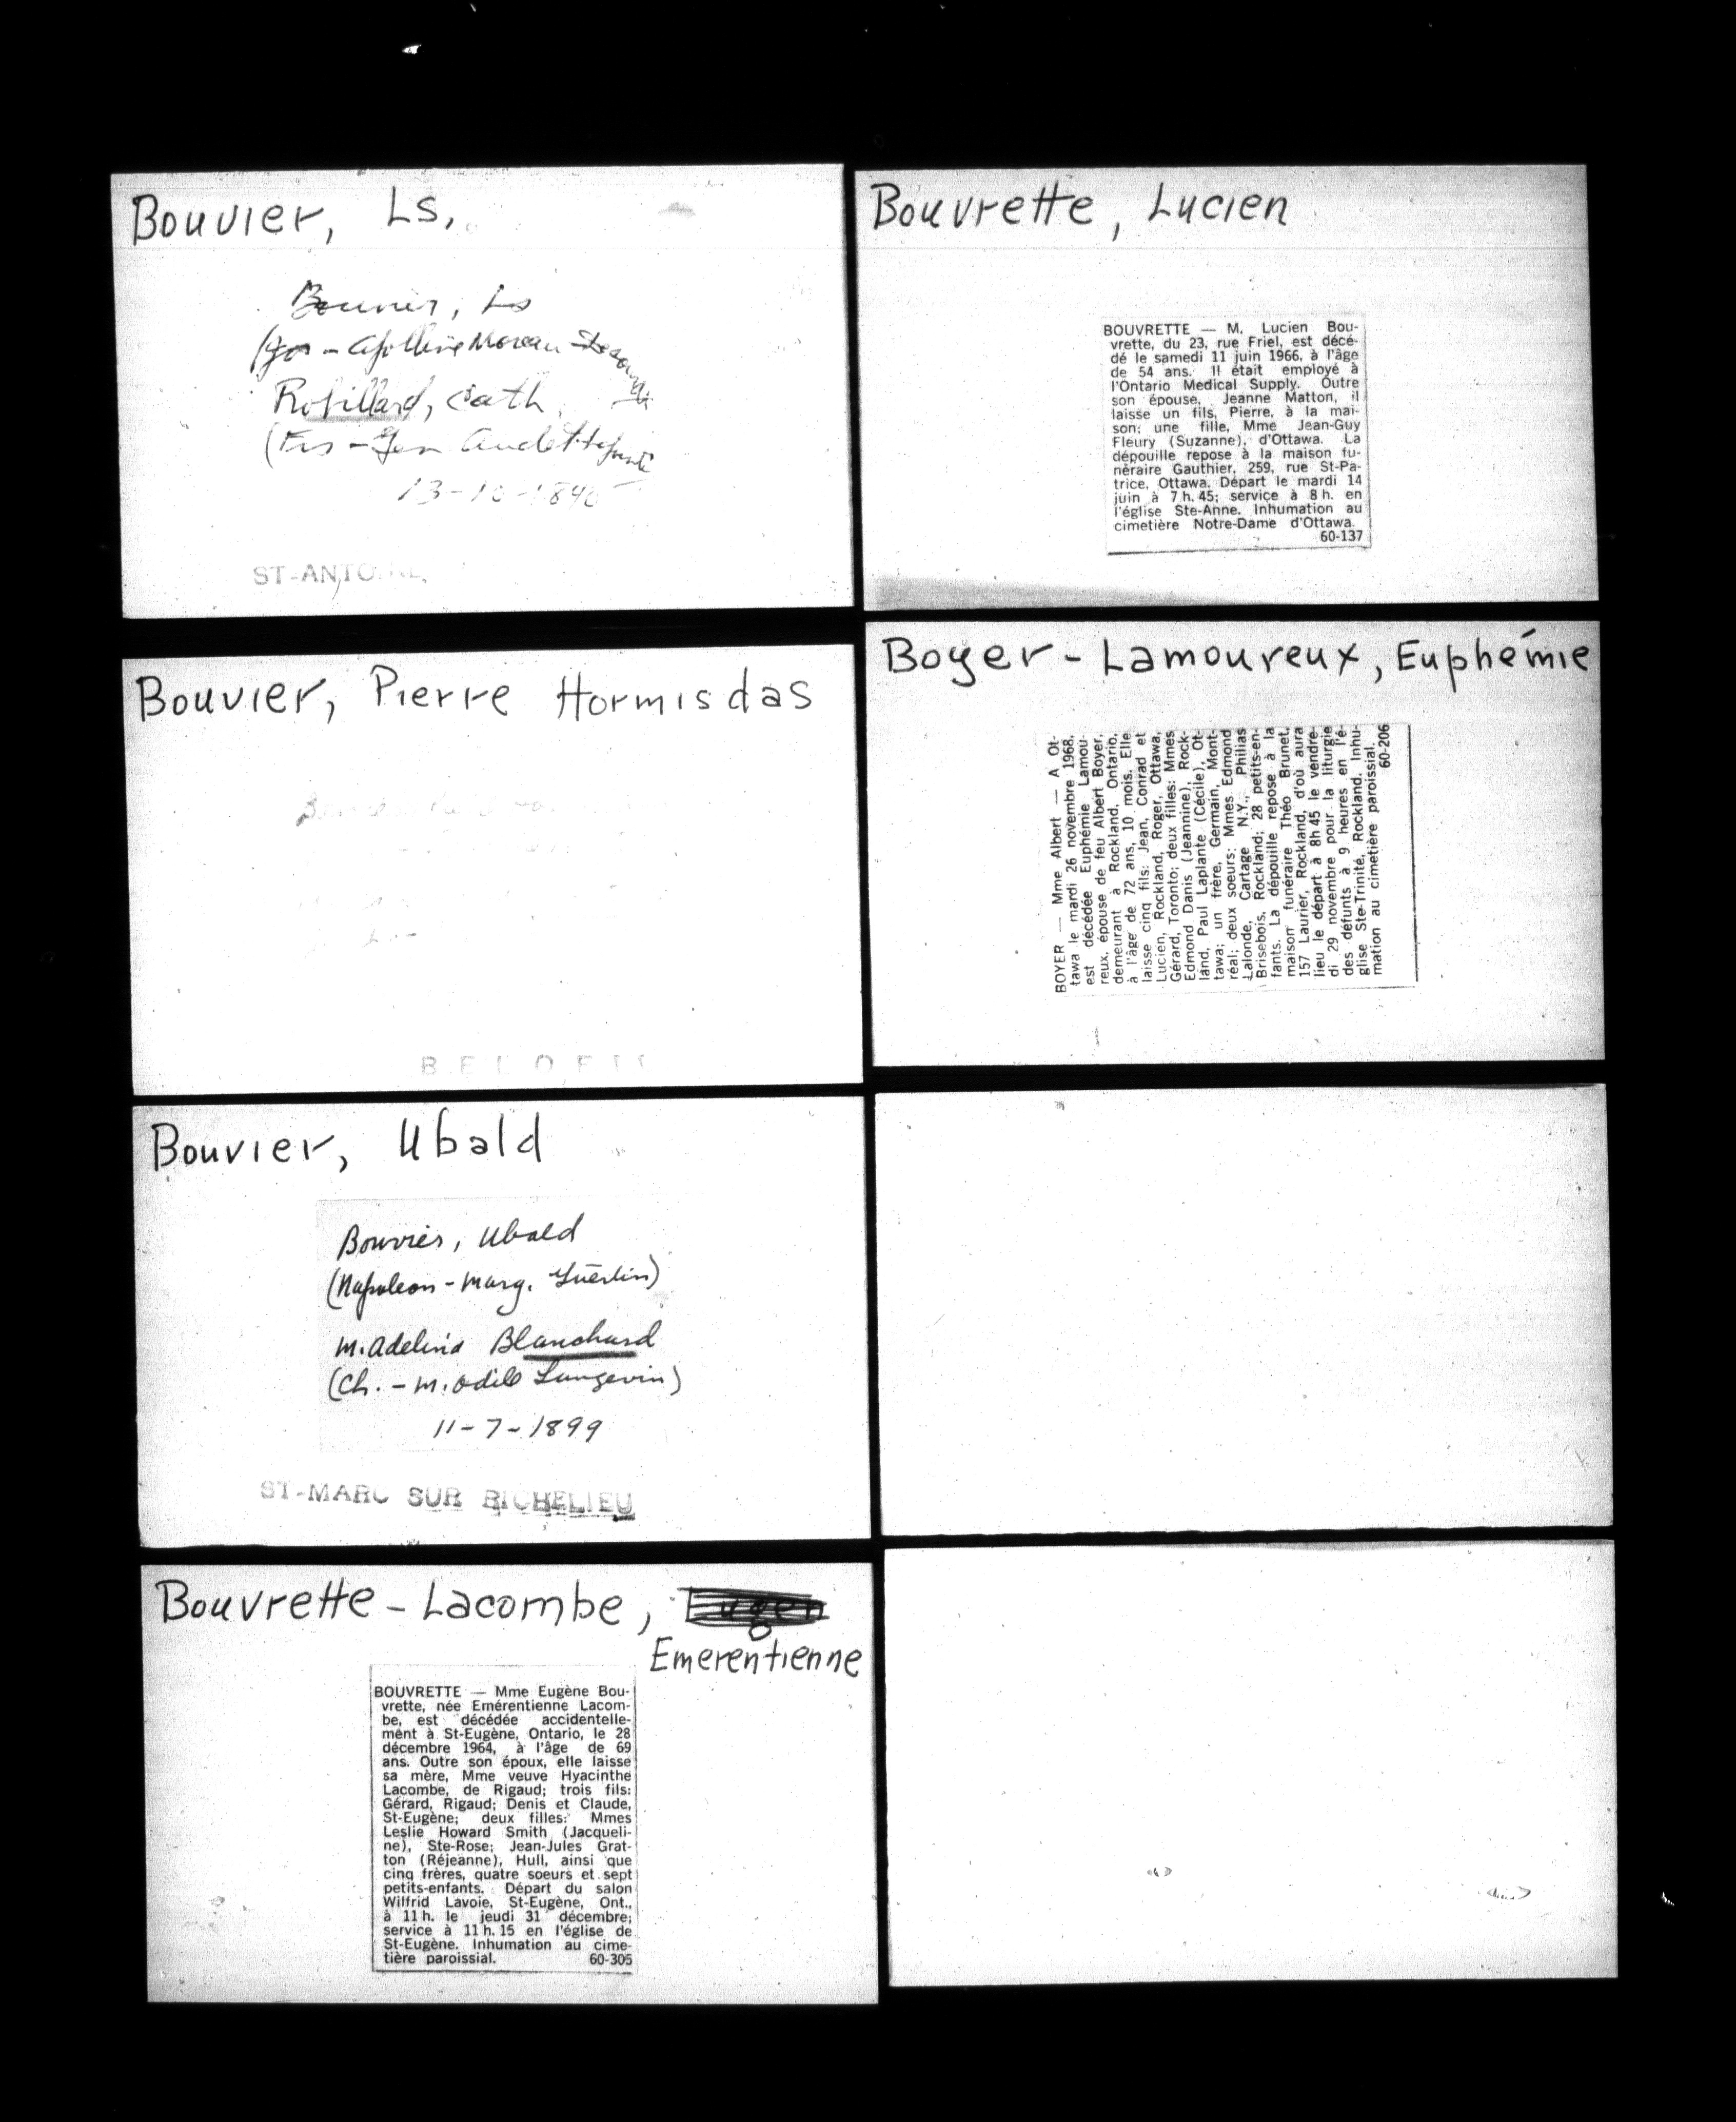 Bouvier, Ls,
Bouvier, Ls
Moreau
Robillard, Cath.
ST-ANTOINE
Bouvier, Pierre Hormisdas
BELOEIL
Bouvier, Ubald
Bouvier, Ubald
(Napoleon - Marg. Guertin)
M. Adelina Blanchard
(Ch. - M. Odile Langevin)
11-7-1899
ST-MARC SUR RICHELIEU
Bouvrette - Lacombe,
Emerentienne
BOUVRETTE — Mme Eugène Bou-
vrette, née Emérentienne Lacom-
be, est décédée accidentelle-
ment à St-Eugène, Ontario, le 28
décembre 1964, à l'âge de 69
ans. Outre son époux, elle laisse
sa mère, Mme veuve Hyacinthe
Lacombe, de Rigaud; trois fils:
Gérard, Rigaud; Denis et Claude,
St-Eugène; deux filles: Mmes
Leslie Howard Smith (Jacqueli-
ne), Ste-Rose; Jean-Jules Grat-
ton (Réjeanne), Hull, ainsi que
cinq frères, quatre soeurs et sept
petits-enfants. Départ du salon
Wilfrid Lavoie, St-Eugène, Ont.,
à 11 h. le jeudi 31 décembre;
service à 11 h. 15 en l'église de
St-Eugène. Inhumation au cime-
tière paroissial. 60-305
Bouvrette, Lucien
BOUVRETTE — M. Lucien Bou-
vrette, du 23, rue Friel, est décé-
dé le samedi 11 juin 1966, à l'âge
de 54 ans. Il était employé à
l'Ontario Medical Supply. Outre
son épouse, Jeanne Matton, il
laisse un fils, Pierre, à la mai-
son; une fille, Mme Jean-Guy
Fleury (Suzanne), d'Ottawa. La
dépouille repose à la maison fu-
néraire Gauthier, 259, rue St-Pa-
trice, Ottawa. Départ le mardi 14
juin à 7 h. 45; service à 8 h. en
l'église Ste-Anne. Inhumation au
cimetière Notre-Dame d'Ottawa.
60-137
Boyer - Lamoureux, Euphémie
BOYER — Mme Albert — A Ot-
tawa le mardi 26 novembre 1968,
est décédée Euphémie Lamou-
reux, épouse de feu Albert Boyer,
demeurant à Rockland, Ontario,
à l'âge de 72 ans, 10 mois. Elle
laisse cinq fils: Jean, Conrad et
Lucien, Rockland, Roger, Ottawa,
Gérard, Toronto; deux filles: Mmes
Edmond Danis (Jeannine), Rock-
land, Paul Laplante (Cécile), Ot-
tawa; un frère, Germain, Mont-
réal; deux soeurs; Mmes Edmond
Lalonde, Cartage N.Y., Philias
Brisebois, Rockland; 28 petits-en-
fants. La dépouille repose à la
maison funéraire Théo Brunet,
157 Laurier, Rockland, d'où aura
lieu le départ à 8h 45 le vendre-
di 29 novembre pour la liturgie
des défunts à 9 heures en l'é-
glise Ste-Trinité, Rockland. Inhu-
mation au cimetière paroissial.
60-206